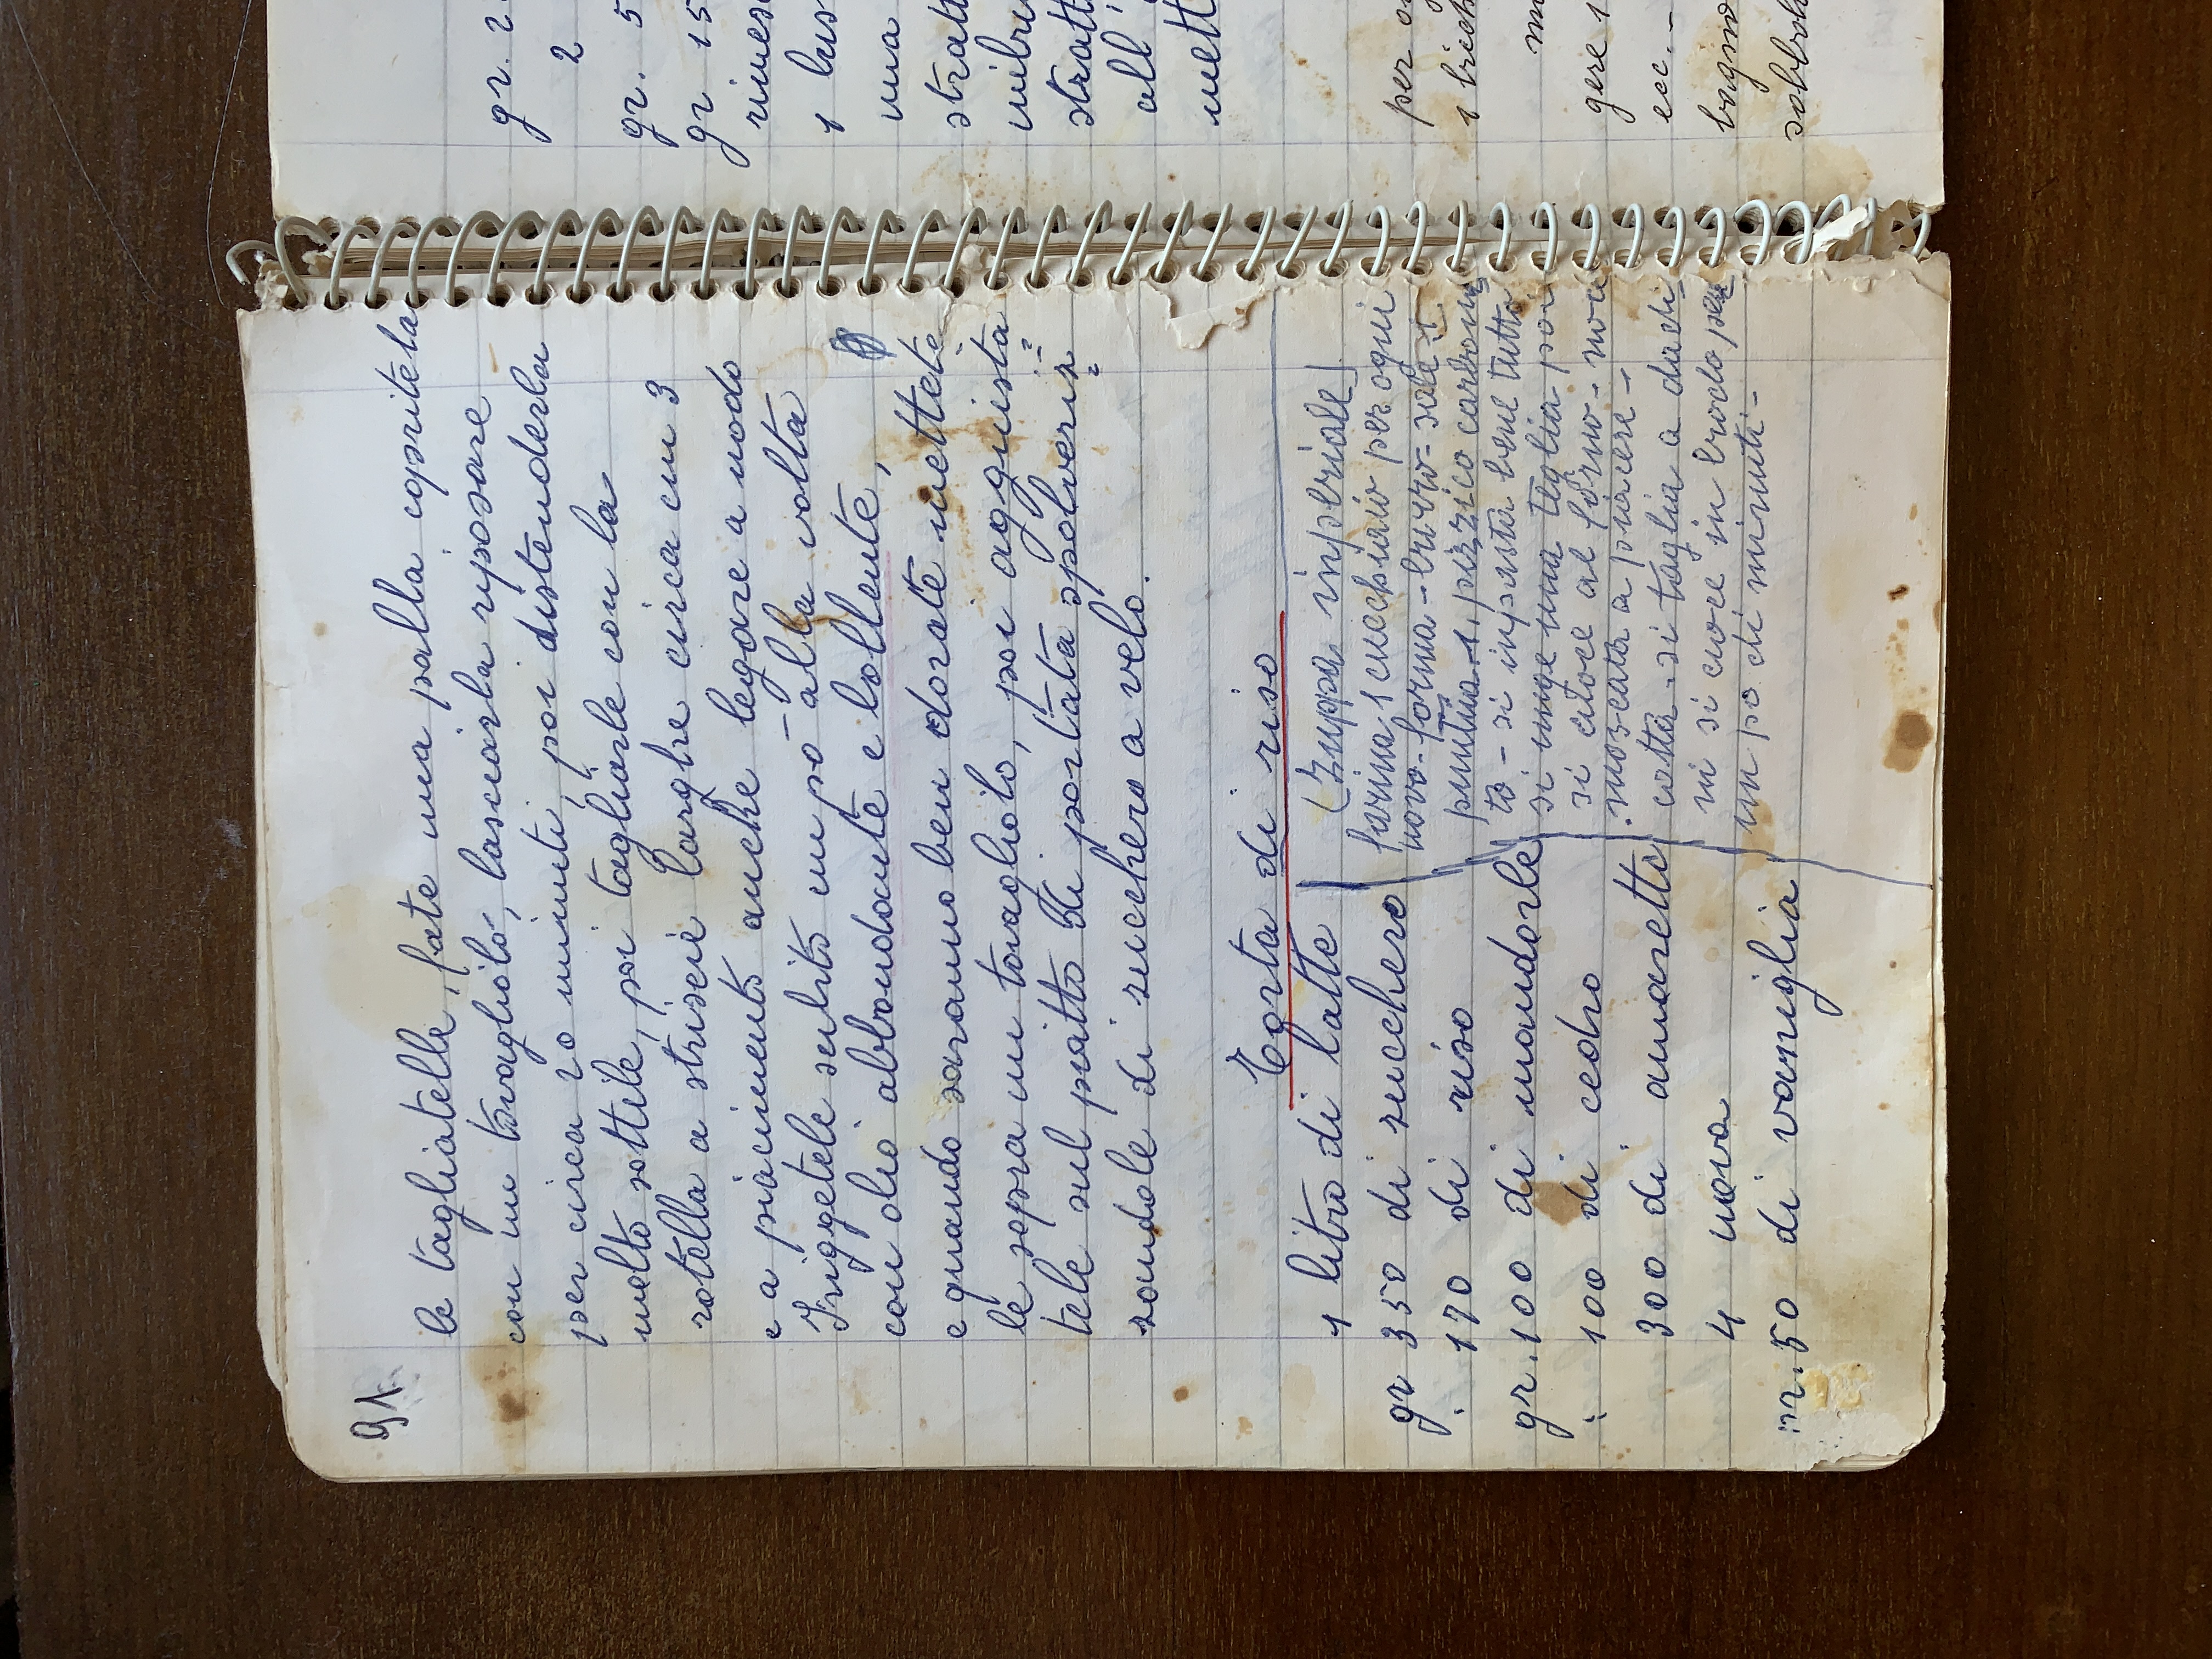 91
le tagliatelle, fate una palla copritela
con un tovagliolo, lasciarla riposare
per circa 20 minuti, poi distenderla
molto sottile, poi tagliarle con la
rotella a striscie larghe circa cm 3
e a piacimento anche legare a nodo
Friggetele subito un pò alla volta
con olio abbondante e bollente,
e quando saranno ben dorate mettete
le sopra un tovagliolo, poi agguista
tele sul piatto di portata spolveriz=
zandole di zucchero a velo.
Torta di riso
1 litro di latte
gr 350 di zucchero
" 170 di riso
gr. 100 di mandorle
" 100 di cedro
300 di amaretti
4 uova
gr. 50 di vaniglia
(Zuppa inperiale)
farina 1 cucchiaio per ogni
uovo - forma - burro - sale 1
puntina 1. pizzico carbona
to - si inpasta bene tutto
si unge una teglia poi
si cuoce al forno - noce
moscata a piacere -
cotta - si taglia a dadi
ni si cuoce in brodo per
un po di minuti -
gr. 2
2
gr. 5
gr 15
rimes
1 bus
una
stratt
imbu
stratt
all'
mett
per o
1 bicch
gere 1
ecc. -
bagno
sobbol